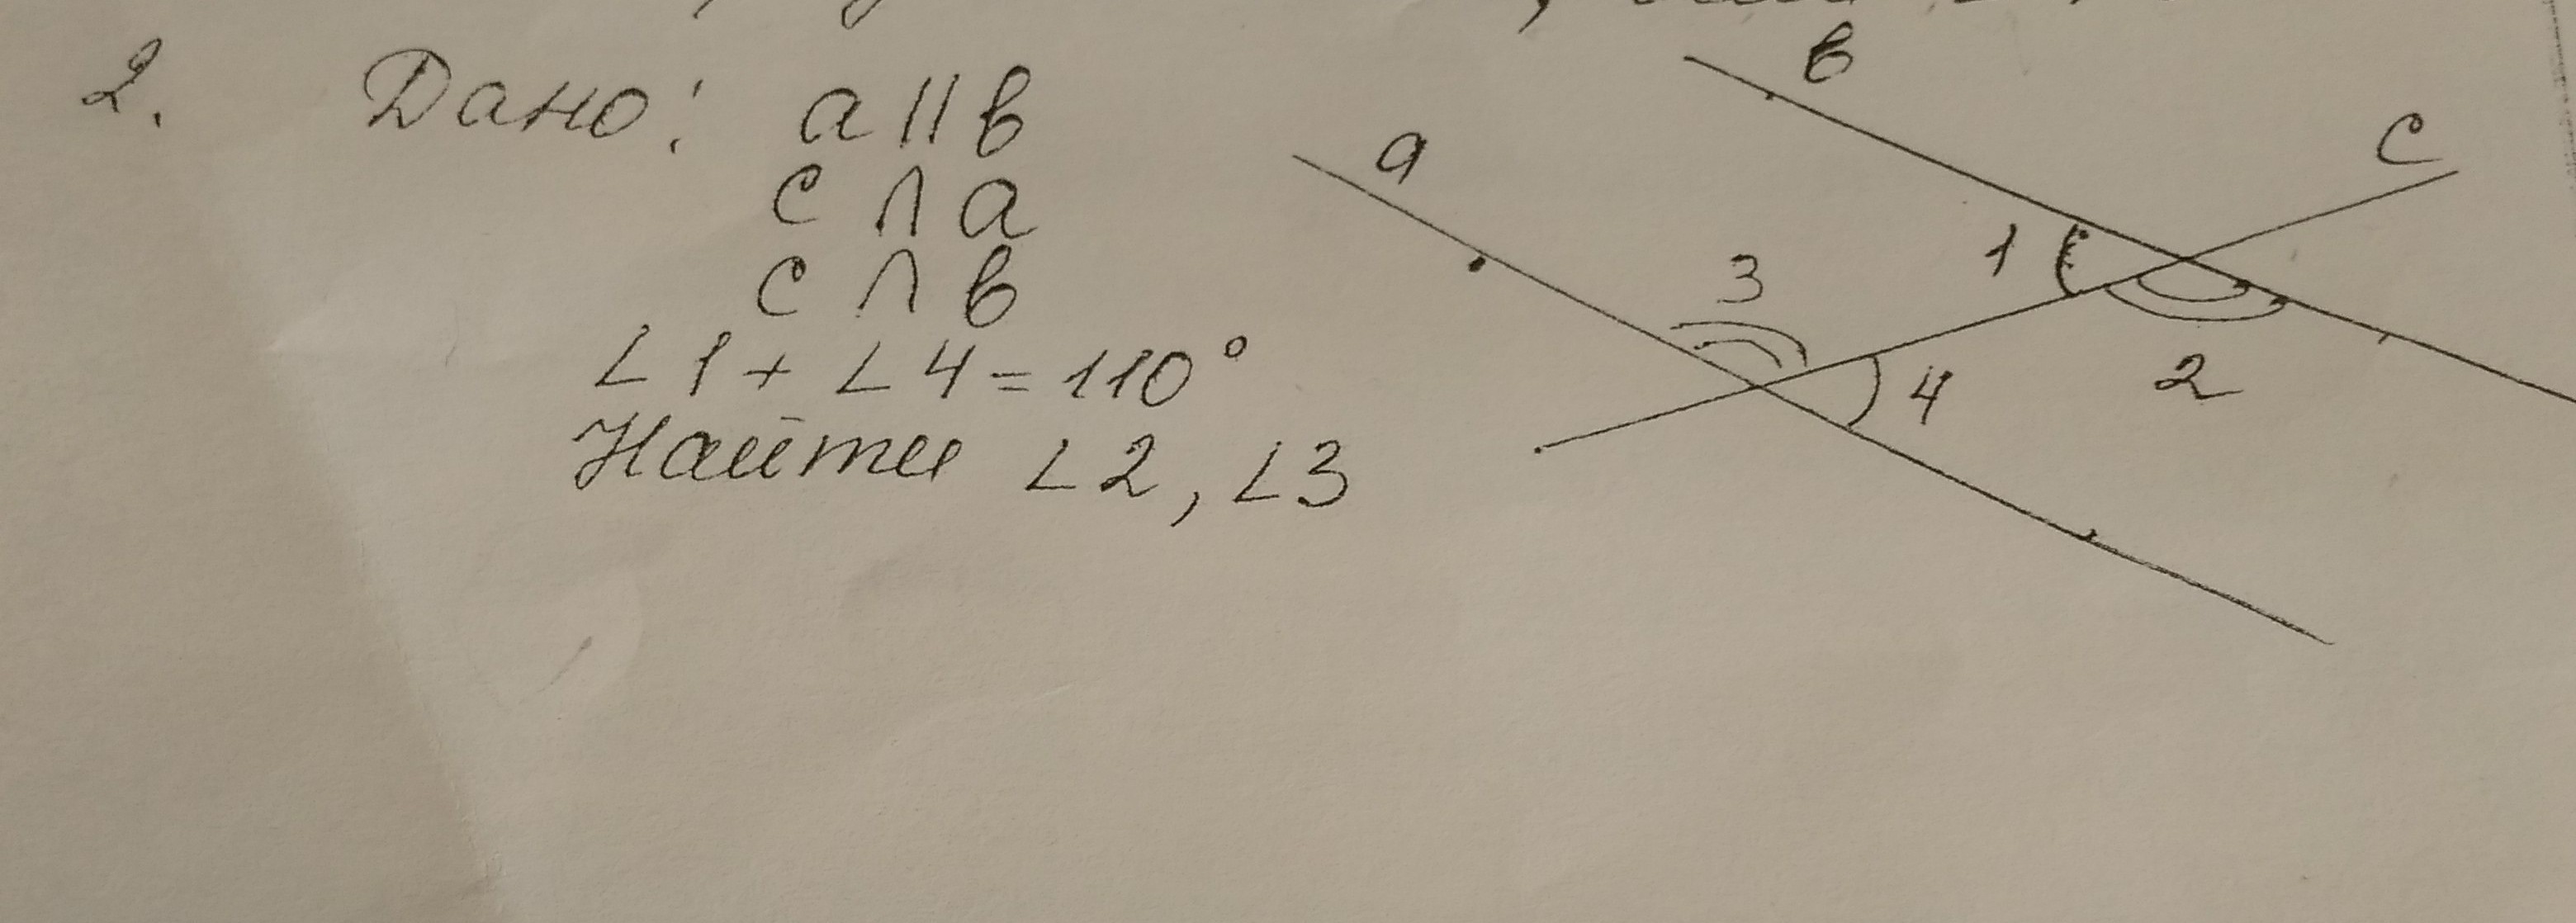 2. Дано: a || в
c ∩ a
c ∩ в
∠1 + ∠4 = 110°
Найти ∠2, ∠3
в
a
c
1
3
4
2